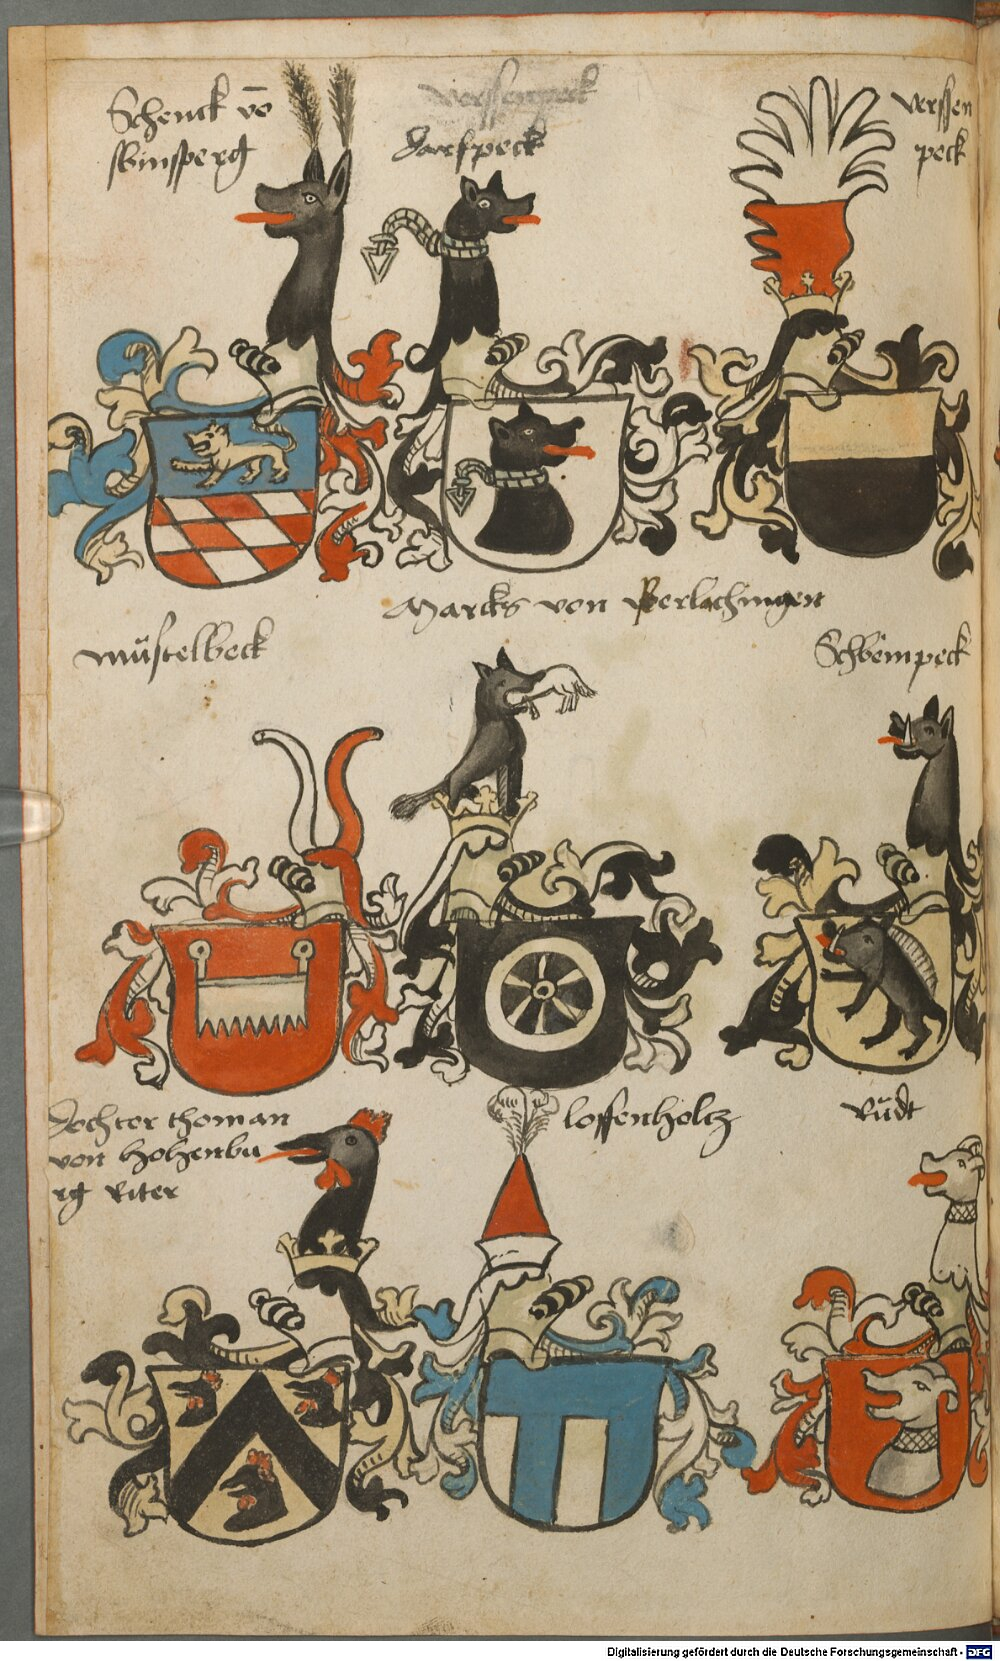 Schenck vō
verssenpeck
verssen
peck
dorfpeck
Marcks von Berlachingen
müstelbeck
Schbeinpeck
dochter thoman
von hohenbu
rg Riter
loffenholcz
Rüdt
Digitalisierung gefördert durch die Deutsche Forschungsgemeinschaft - DFG